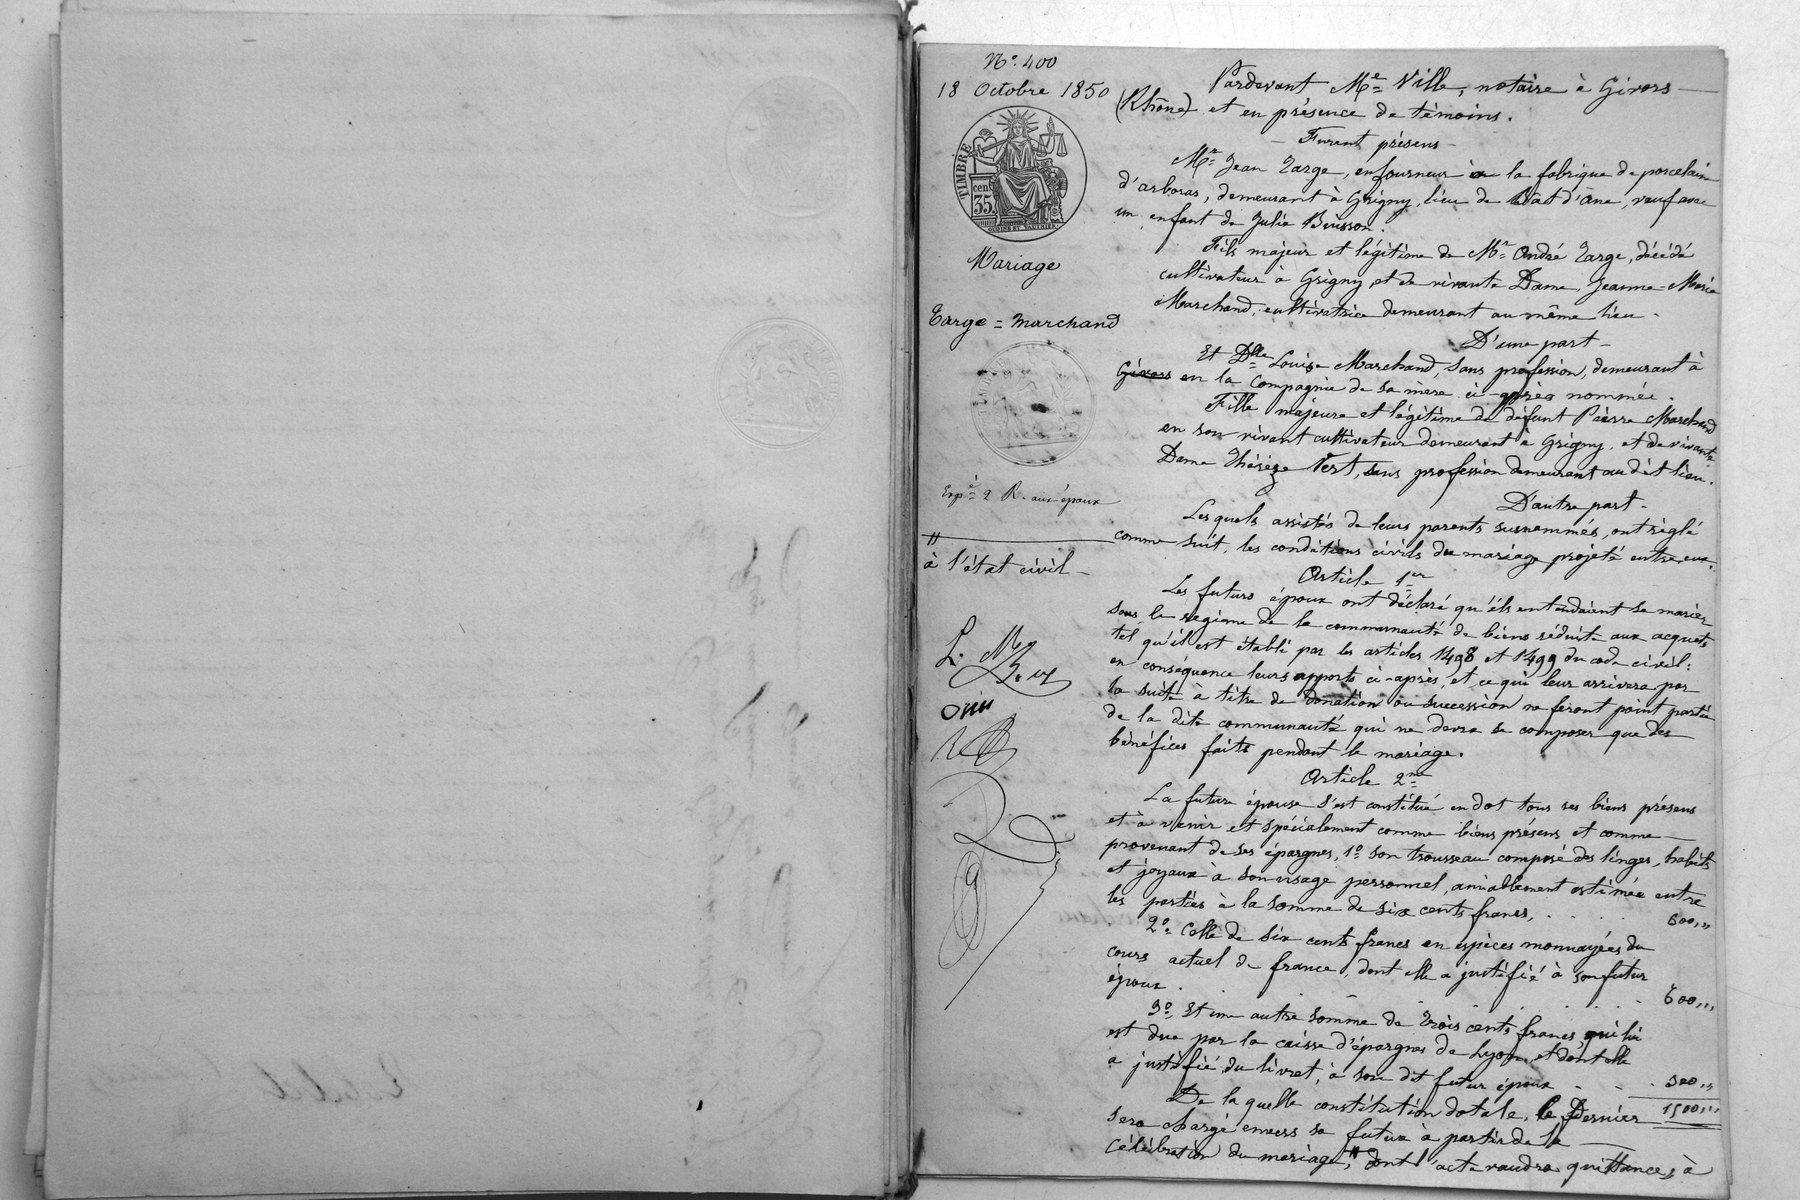 N° 400
18 Octobre 1850
TIMBRE
cen
35
Mariage
Targe = Marchand
Exp.é 2 R. aux époux
à l'état civil
L. M
Pardevant Me Ville, notaire à Givors
(Rhône) et en présence de témoins.
Furent présens
Mr Jean Targe, enfourneur à la fabrique de porcelaine
d'arboras, demeurant à Grigny, lieu de Bat d'âne, veuf avec
un enfant de Julie Buisson.
Fils majeur et légitime de Mr André Targe, décédé
cultivateur à Grigny et de vivante Dame Jeanne-Marie
Marchand, cultivatrice demeurant au même lieu.
D'une part
Et Dlle Louise Marchand, sans profession, demeurant à
Givors en la Compagnie de sa mère ci-après nommée.
Fille majeure et légitime de défunt Pierre Marchand
en son vivant cultivateur demeurant à Grigny, et de vivante
Dame Thérèze Vert, sans profession demeurant au dit lieu.
D'autre part.
Lesquels assistés de leurs parents susnommés, ont règlé
comme suit, les conditions civils du mariage projeté entre eux.
Article 1er
Les futurs époux ont déclaré qu'ils entendaient se marier
sous le régime de la communauté de biens réduite aux acquets
tel qu'il est établi par les articles 1498 et 1499 du code civil:
en conséquence leurs apports ci-après, et ce qui leur arrivera par
la suite à titre de donation ou succession ne feront point partie
de la dite communauté qui ne devra se composer que des
bénéfices faits pendant le mariage.
Article 2me
La future épouse s'est constitué en dot tous ses biens présens
et à venir et spécialement comme biens présens et comme
provenant de ses épargnes, 1° son trousseau composé des linges, habits
et joyaux à son usage personnel, amiablement estimée entre
les parties à la somme de six cents francs, . . . . 600,,"
2° Celle de six cents francs en espèces monnayées du
cours actuel de france, dont elle a justifié à son futur
époux . . . . 600,,"
3° Et une autre somme de Trois cents francs, qui lui
est due par la caisse d'épargnes de Lyon et dont elle
a justifié, du livret, à son dit futur époux . . . 300,,"
De la quelle constitution dotale, le Dernier 1500,,"
sera chargé envers sa future à partir de la
célébration du mariage, dont l'acte vaudra quittance, à